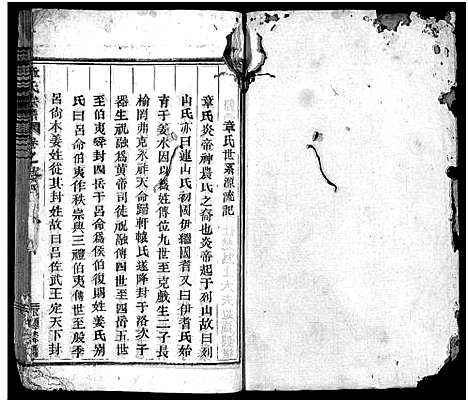 章氏世系源流記
章氏炎帝神農氏之裔也炎帝起于列山故曰列
山氏亦曰連山氏初國伊繼國耆又曰伊耆氏始
育于姜水因以爲姓傳位九世至克戲生二子長
榆罔弗克永祚天命歸軒轅氏遂降封于洛次子
器生祝融爲黃帝司徒祝融傳四世至四岳五世
至伯夷舜封四岳于呂命爲侯伯復賜姓姜氏別
氏曰呂命伯夷作秩宗典三禮伯夷傳世至殷季
呂尚本姜姓從其封姓故曰呂佐武王定天下封